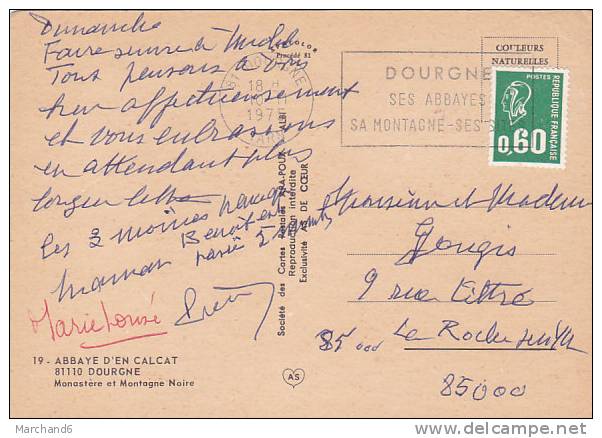 Dimanche
Faire suivre à Michel
Tout pensons à vous
bien affectueusement
et vous embrassons
en attendant plus
longue lettre
les 2 moines
Benoit et
Maman
Marie Louise
19 - ABBAYE D'EN CALCAT
81110 DOURGNE
Monastère et Montagne Noire
Société des Cartes Postales APA-POUX - ALBI
Reproduction interdite
Exclusivité AS DE CŒUR
AS
Procédé 81
COULEURS
NATURELLES
81 DOURGNE
18 H
TARN
DOURGNE
SES ABBAYES
SA MONTAGNE-SES
POSTES
REPUBLIQUE FRANÇAISE
0,60
Monsieur et Madame
Gougis
9 rue Littré
85000
La Roche sur Yon
85000
Marchand6
www.delcampe.net